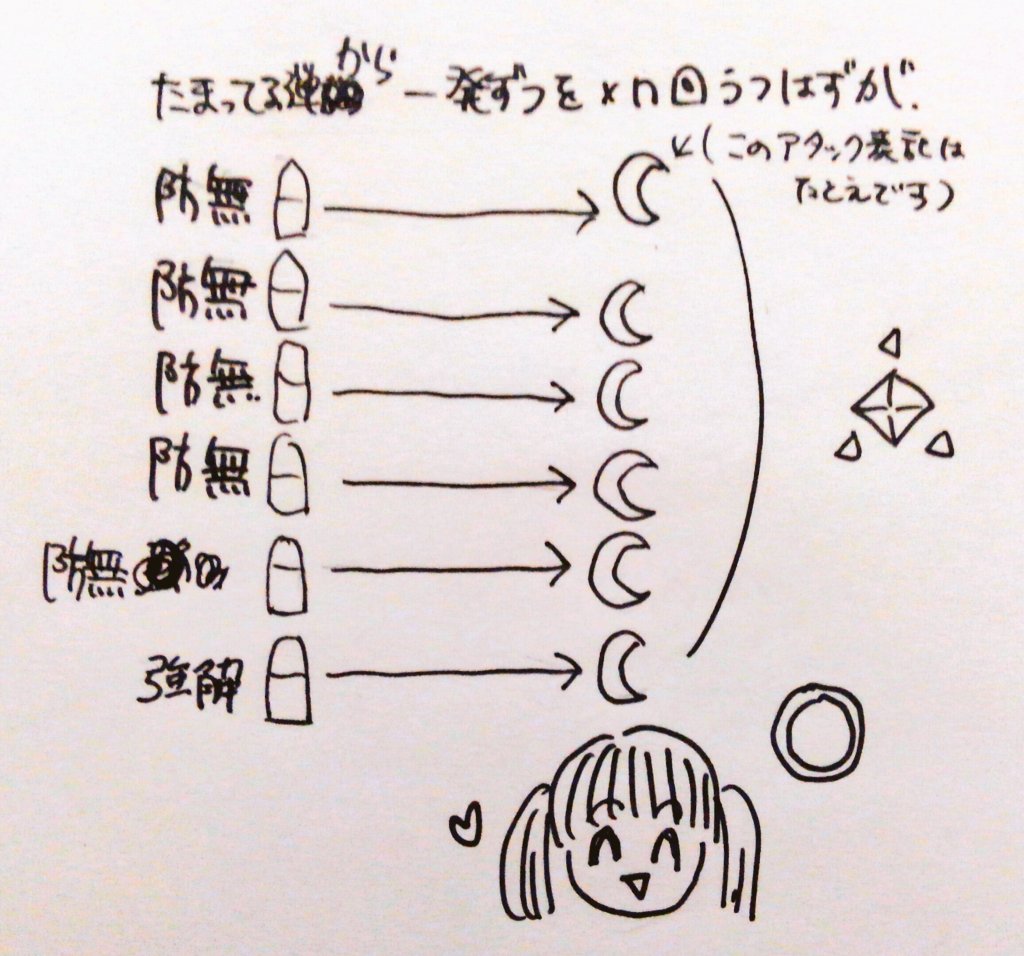 たまってる弾から一発ずつを×n回うつはずが.
(このアタック表記は
たとえです)
防無
防無
防無
防無
防無
強解